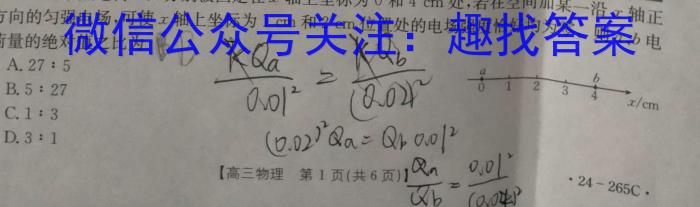 轴上坐标为 0 和 4 cm 处,若在空间加某一沿 x 轴正
方向的匀强电场,可使 x 轴上坐标为
处的电场
b 电
荷量的绝对值之比为
微信公众号关注:趣找答案
A. 27:5
B. 5:27
C. 1:3
D. 3:1
KQa/0.01² = KQb/(0.02)²
(0.02)²Qa = Qb 0.01²
Qa/Qb = 0.01²/(0.02)²
a b
0 1 2 3 4 x/cm
【高三物理 第 1 页(共 6 页)】
·24-265C·